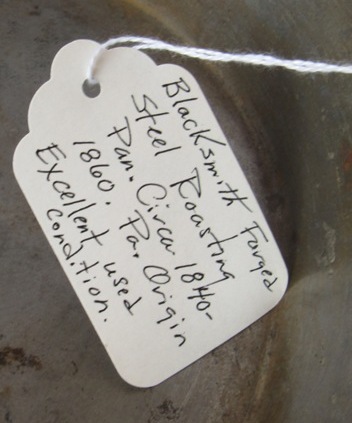 Blacksmith Forged
Steel Roasting
Pan. Circa 1840-
1860. Pa. Origin
Excellent used
condition.